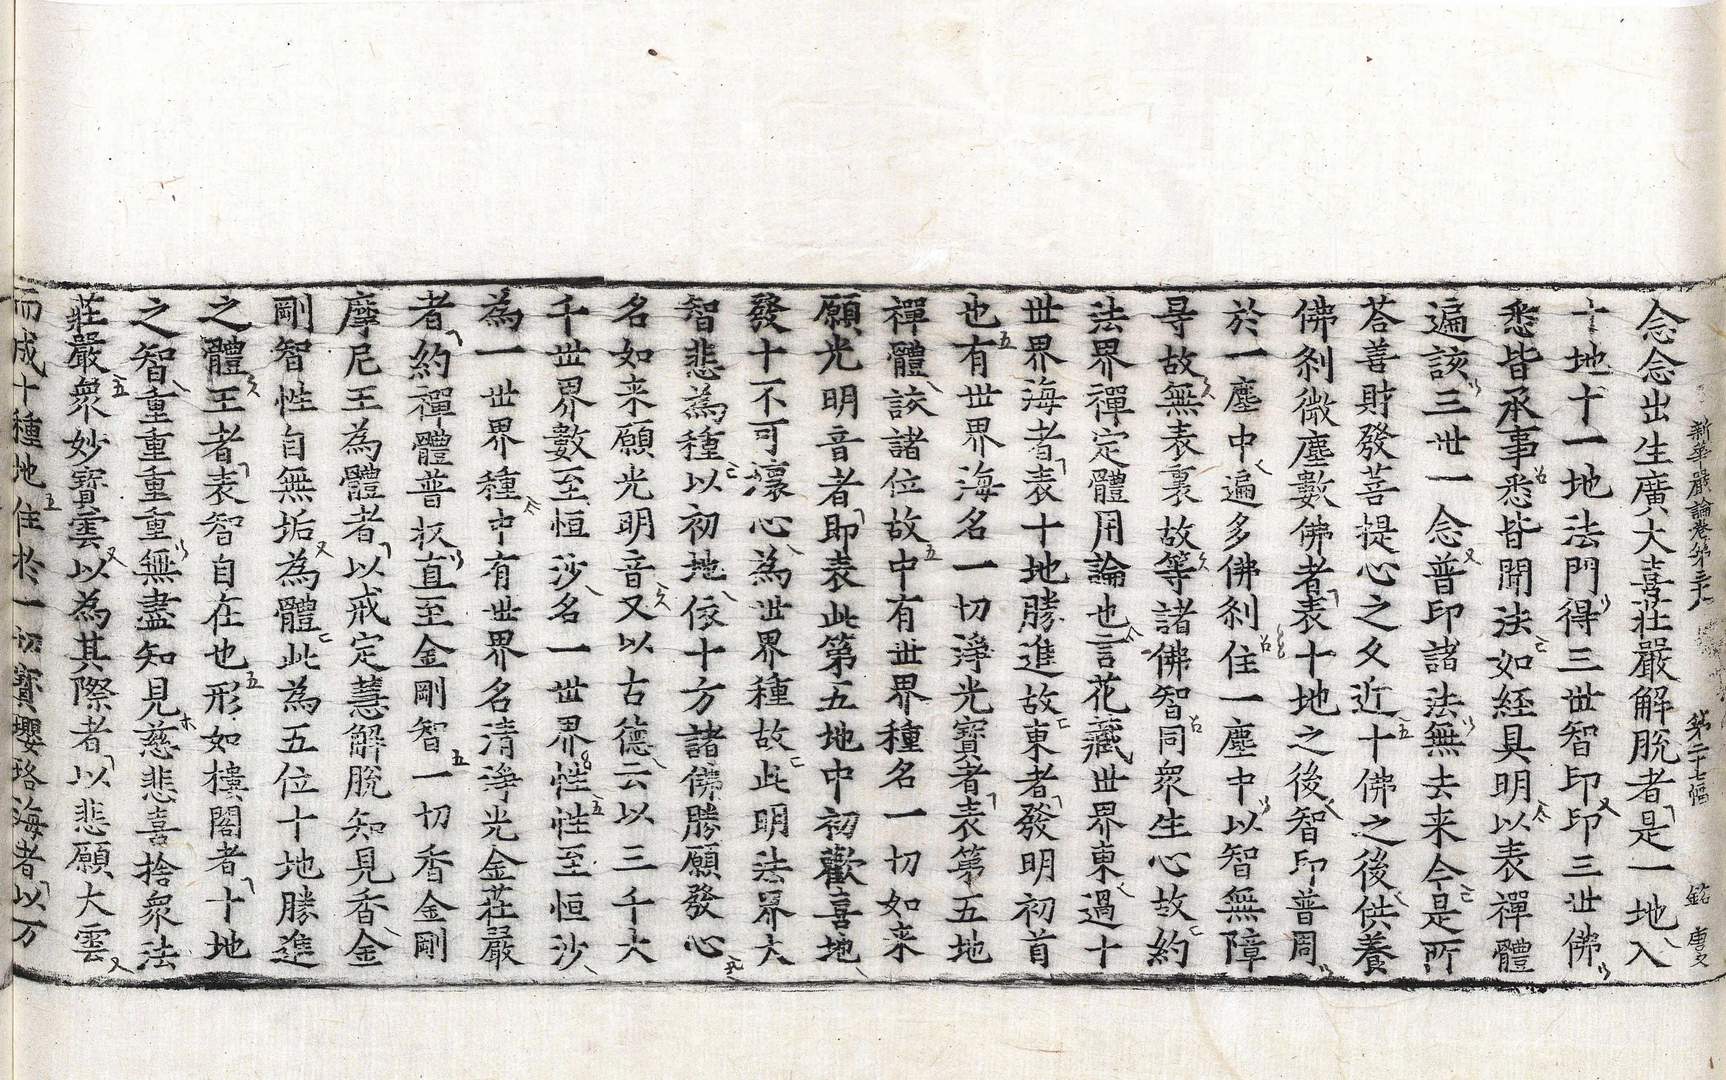 新華嚴論卷第三十八 第二十七幅 銘 唐文
念念出生廣大喜莊嚴解脫者是一地入
十地十一地法門得三世智印印三世佛
悉皆承事悉皆聞法如經具明以表禪體
遍該三世一念普印諸法無去来今是所
荅善財發菩提心之久近十佛之後供養
佛剎微塵數佛者表十地之後智印普周
於一塵中遍多佛剎住一塵中以智無障
㝵故無表裏故等諸佛智同衆生心故約
法界禪定體用論也言花藏世界東過十
世界海者表十地勝進故東者發明初首
也有世界海名一切淨光寶者表第五地
禪體該諸位故中有世界種名一切如来
願光明音者即表此第五地中初歡喜地
發十不可壞心為世界種故此明法界大
智悲為種以初地依十方諸佛勝願發心
名如来願光明音又以古德云以三千大
千世界數至恒沙名一世界性性至恒沙
為一世界種中有世界名清淨光金莊嚴
者約禪體普扠直至金剛智一切香金剛
摩尼王為體者以戒定慧解脫知見香金
剛智性自無垢為體此為五位十地勝進
之體王者表智自在也形如樓閣者十地
之智重重重重無盡知見慈悲喜捨衆法
莊嚴衆妙寶雲以為其際者以悲願大雲
而成十種地住於一切寶瓔珞海者以万